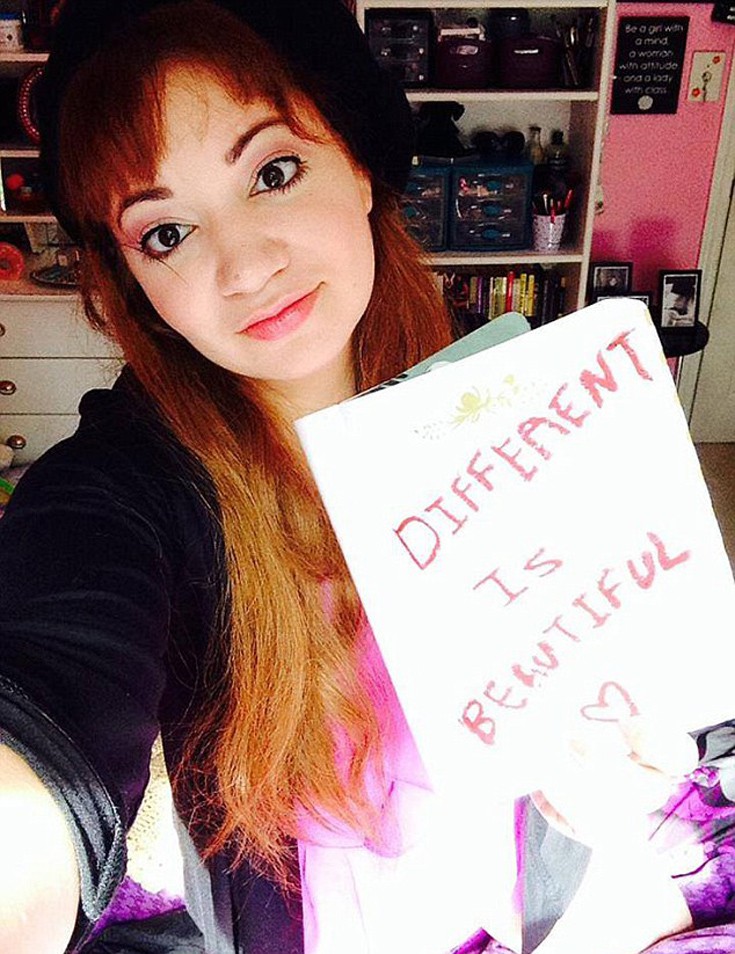 Be a girl with
a mind,
a woman
with attitude
and a lady
with class.
DIFFERENT
IS
BEAUTIFUL